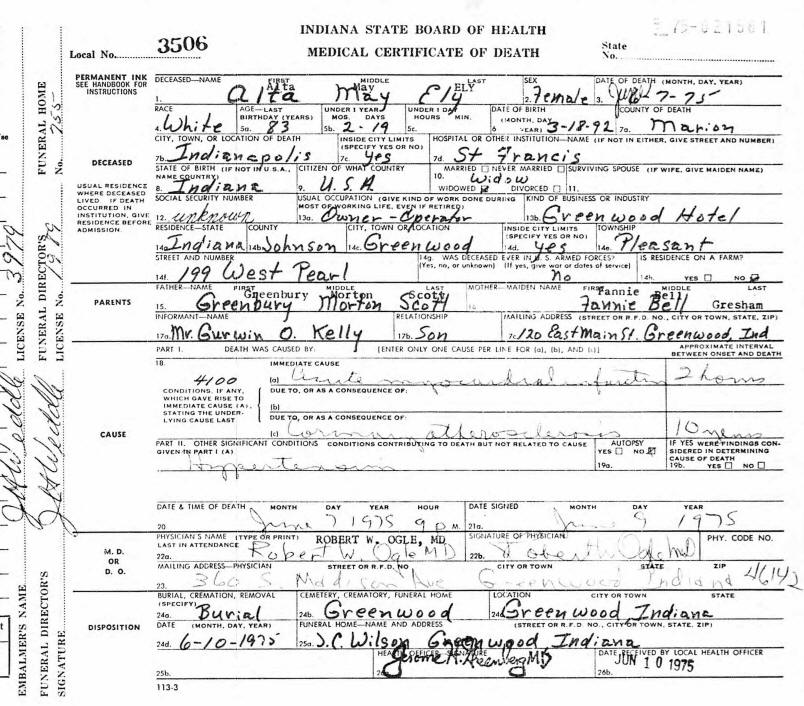 INDIANA STATE BOARD OF HEALTH
MEDICAL CERTIFICATE OF DEATH
Local No. 3506
State No.
PERMANENT INK SEE HANDBOOK FOR INSTRUCTIONS
DECEASED—NAME FIRST MIDDLE LAST SEX DATE OF DEATH (MONTH, DAY, YEAR)
Alta May ELY
1. Alta May Ely 2. Female 3. 6-7-75
RACE AGE—LAST BIRTHDAY (YEARS) UNDER 1 YEAR MOS. DAYS UNDER 1 DAY HOURS MIN. DATE OF BIRTH (MONTH, DAY, YEAR) COUNTY OF DEATH
4. White 5a. 83 5b. 2-19 5c. 6 3-18-92 7a. Marion
CITY, TOWN, OR LOCATION OF DEATH INSIDE CITY LIMITS (SPECIFY YES OR NO) HOSPITAL OR OTHER INSTITUTION—NAME (IF NOT IN EITHER, GIVE STREET AND NUMBER)
7b. Indianapolis 7c. yes 7d. St Francis
DECEASED
USUAL RESIDENCE WHERE DECEASED LIVED. IF DEATH OCCURRED IN INSTITUTION, GIVE RESIDENCE BEFORE ADMISSION.
STATE OF BIRTH (IF NOT IN U.S.A., NAME COUNTRY) CITIZEN OF WHAT COUNTRY MARRIED NEVER MARRIED SURVIVING SPOUSE (IF WIFE, GIVE MAIDEN NAME)
8. Indiana 9. U.S.A 10. Widow WIDOWED DIVORCED 11.
SOCIAL SECURITY NUMBER USUAL OCCUPATION (GIVE KIND OF WORK DONE DURING MOST OF WORKING LIFE, EVEN IF RETIRED) KIND OF BUSINESS OR INDUSTRY
12. unknown 13a. Owner-Operator 13b. Greenwood Hotel
RESIDENCE—STATE COUNTY CITY, TOWN OR LOCATION INSIDE CITY LIMITS (SPECIFY YES OR NO) TOWNSHIP
14a. Indiana 14b. Johnson 14c. Greenwood 14d. yes 14e. Pleasant
STREET AND NUMBER 14g. WAS DECEASED EVER IN U.S. ARMED FORCES? (Yes, no, or unknown) (If yes, give war or dates of service) IS RESIDENCE ON A FARM?
14f. 199 West Pearl no 14h. YES NO
PARENTS
FATHER—NAME FIRST MIDDLE LAST MOTHER—MAIDEN NAME FIRST MIDDLE LAST
Greenbury Morton Scott Fannie Bell
15. Greenbury Morton Scott Fannie Bell Gresham
INFORMANT—NAME RELATIONSHIP MAILING ADDRESS (STREET OR R.F.D. NO., CITY OR TOWN, STATE, ZIP)
17a. Mr. Gurwin O. Kelly 17b. Son 7c. 120 East Main St. Greenwood, Ind
PART I. DEATH WAS CAUSED BY: [ENTER ONLY ONE CAUSE PER LINE FOR (a), (b), AND (c)] APPROXIMATE INTERVAL BETWEEN ONSET AND DEATH
18. IMMEDIATE CAUSE
4100 (a) Acute myocardial infarction 2 hours
CONDITIONS, IF ANY, WHICH GAVE RISE TO IMMEDIATE CAUSE (A), STATING THE UNDERLYING CAUSE LAST
DUE TO, OR AS A CONSEQUENCE OF:
(b)
DUE TO, OR AS A CONSEQUENCE OF:
CAUSE
(c) Coronary atherosclerosis 10
PART II. OTHER SIGNIFICANT CONDITIONS CONDITIONS CONTRIBUTING TO DEATH BUT NOT RELATED TO CAUSE GIVEN IN PART I (A) AUTOPSY YES NO IF YES WERE FINDINGS CONSIDERED IN DETERMINING CAUSE OF DEATH
Hypertension 19a. 19b. YES NO
DATE & TIME OF DEATH MONTH DAY YEAR HOUR DATE SIGNED MONTH DAY YEAR
20 June 7 1975 9 p M. 21a. June 9 1975
M.D. OR D.O.
PHYSICIAN'S NAME (TYPE OR PRINT) LAST IN ATTENDANCE ROBERT W. OGLE, MD SIGNATURE OF PHYSICIAN PHY. CODE NO.
22a. Robert W. Ogle MD 22b. Robert W Ogle MD
MAILING ADDRESS—PHYSICIAN STREET OR R.F.D. NO CITY OR TOWN STATE ZIP
23. 360 S. Madison Ave Greenwood Indiana 46142
DISPOSITION
BURIAL, CREMATION, REMOVAL (SPECIFY) CEMETERY, CREMATORY, FUNERAL HOME LOCATION CITY OR TOWN STATE
24a. Burial 24b. Greenwood 24c Greenwood Indiana
DATE (MONTH, DAY, YEAR) FUNERAL HOME—NAME AND ADDRESS (STREET OR R.F.D. NO., CITY OR TOWN, STATE, ZIP)
24d. 6-10-1975 25a. J.C. Wilson Greenwood Indiana
HEALTH OFFICER SIGNATURE DATE RECEIVED BY LOCAL HEALTH OFFICER
25b. 26b. JUN 10 1975
113-3
EMBALMER'S NAME LICENSE No. 3979
FUNERAL DIRECTOR'S LICENSE No. 1989
FUNERAL DIRECTOR'S SIGNATURE
FUNERAL HOME No. 755